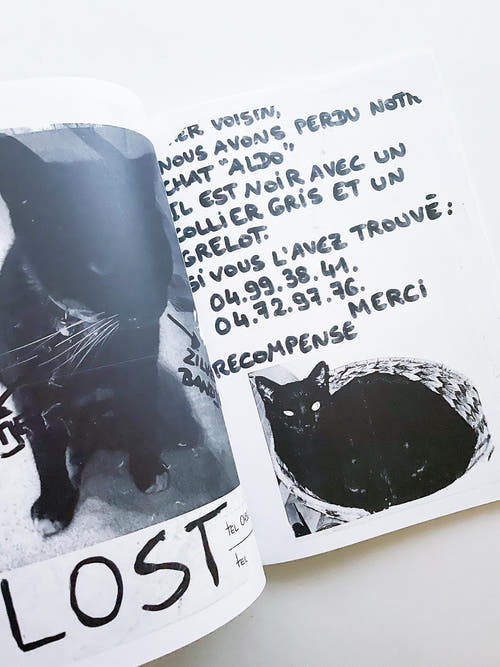 LOST
TEL
TEL
VOISIN,
NOUS AVONS PERDU
CHAT "ALDO"
IL EST NOIR AVEC UN
COLLIER GRIS ET UN
GRELOT.
SI VOUS L'AVEZ TROUVÉ:
04.99.38.41.
04.72.97.76.
MERCI
RECOMPENSE